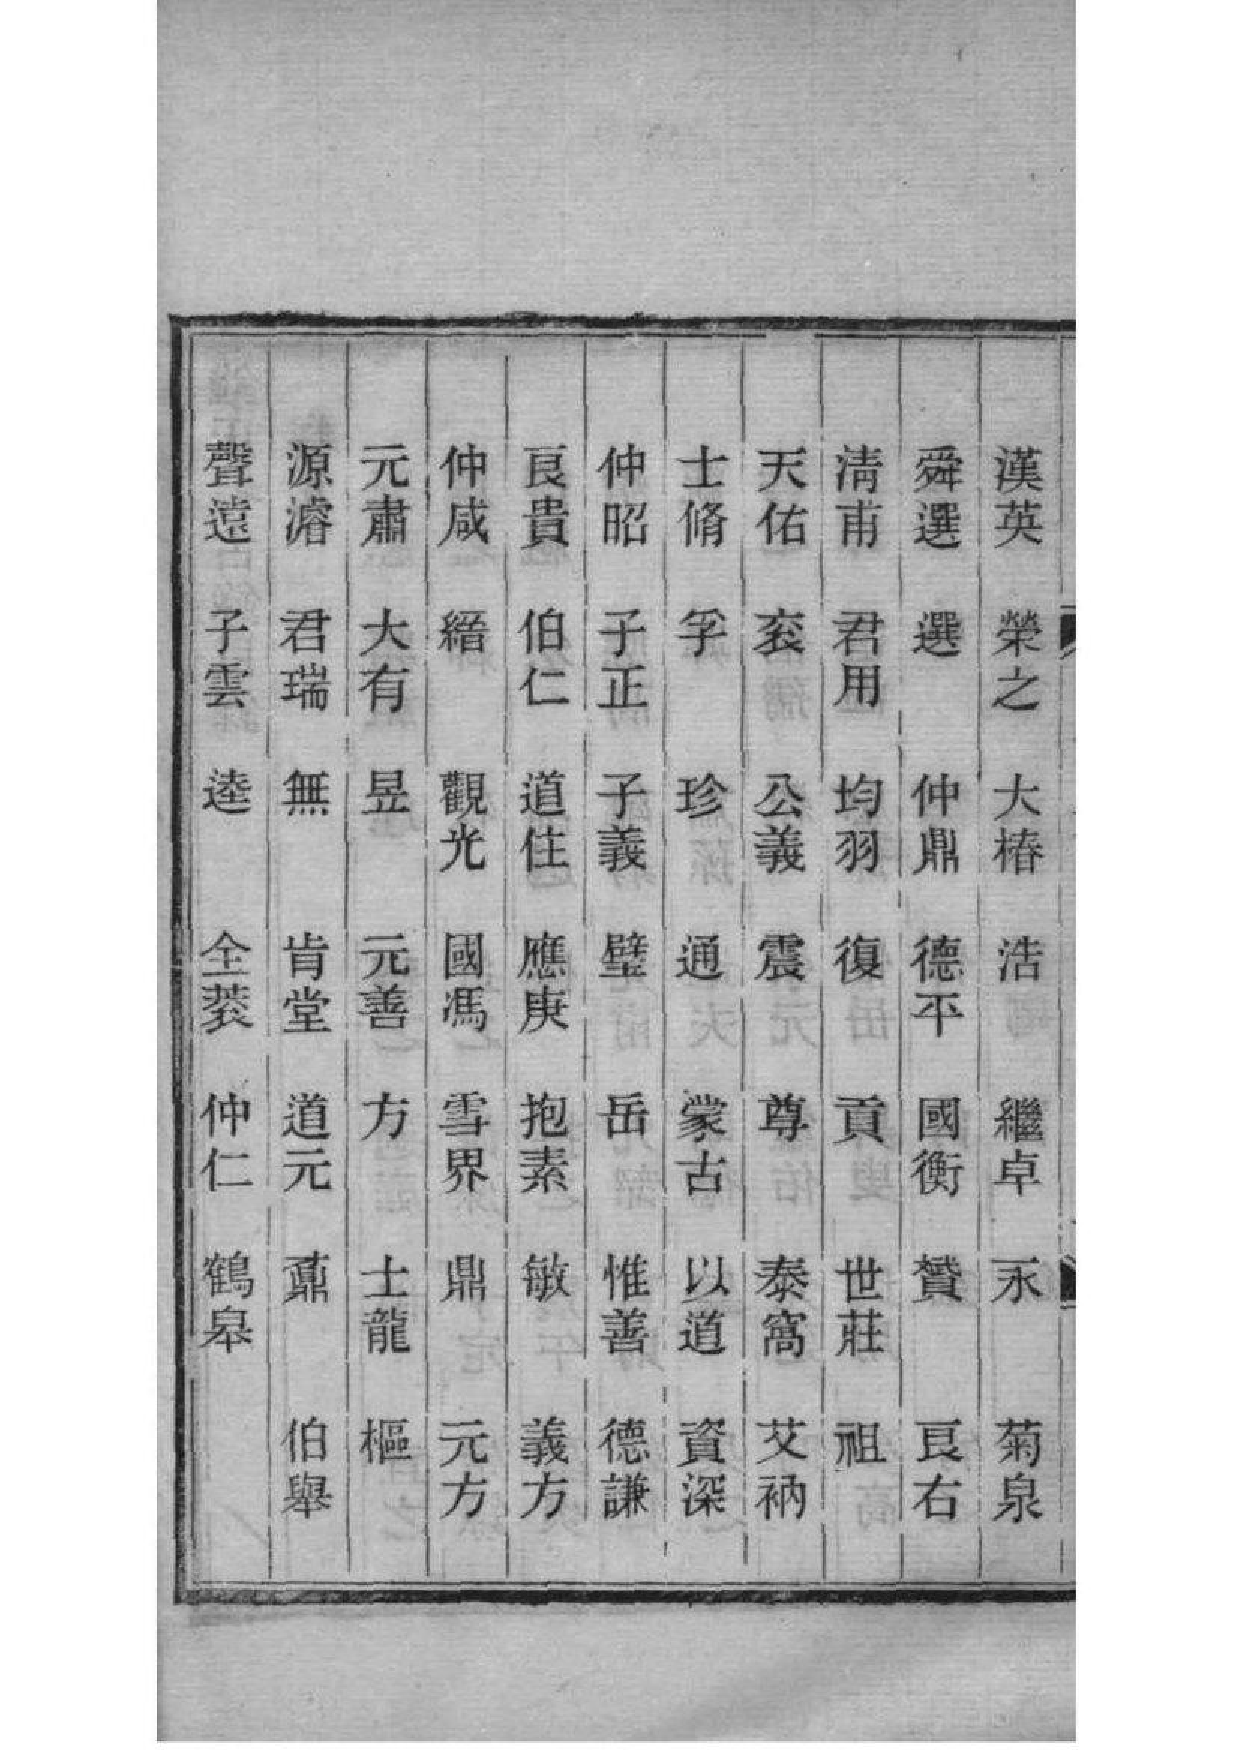 漢英　榮之　大椿　浩　繼卓　永　菊泉
舜選　選　仲鼎　德平　國衡　贇　良右
淸甫　君用　均羽　復　貢　世莊　祖
天佑　衮　公義　震　尊　泰窩　艾衲
士脩　孚　珍　通　蒙古　以道　資深
仲昭　子正　子義　璧　岳　惟善　德謙
良貴　伯仁　道住　應庚　抱素　敏　義方
仲咸　縉　觀光　國馮　雪界　鼎　元方
元肅　大有　昱　元善　方　士龍　樞
源濬　君瑞　無　肯堂　道元　鼐　伯舉
聲遠　子雲　逵　仝　仲仁　鶴皋